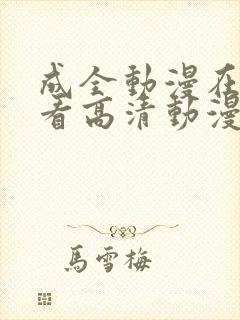 成全動漫在
看高清動漫
馬雪梅